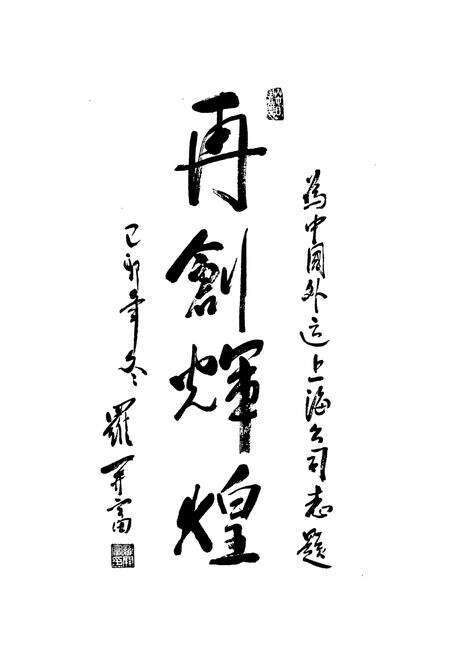 為中國外运上海公司志題
再創輝煌
己卯年冬 羅開富